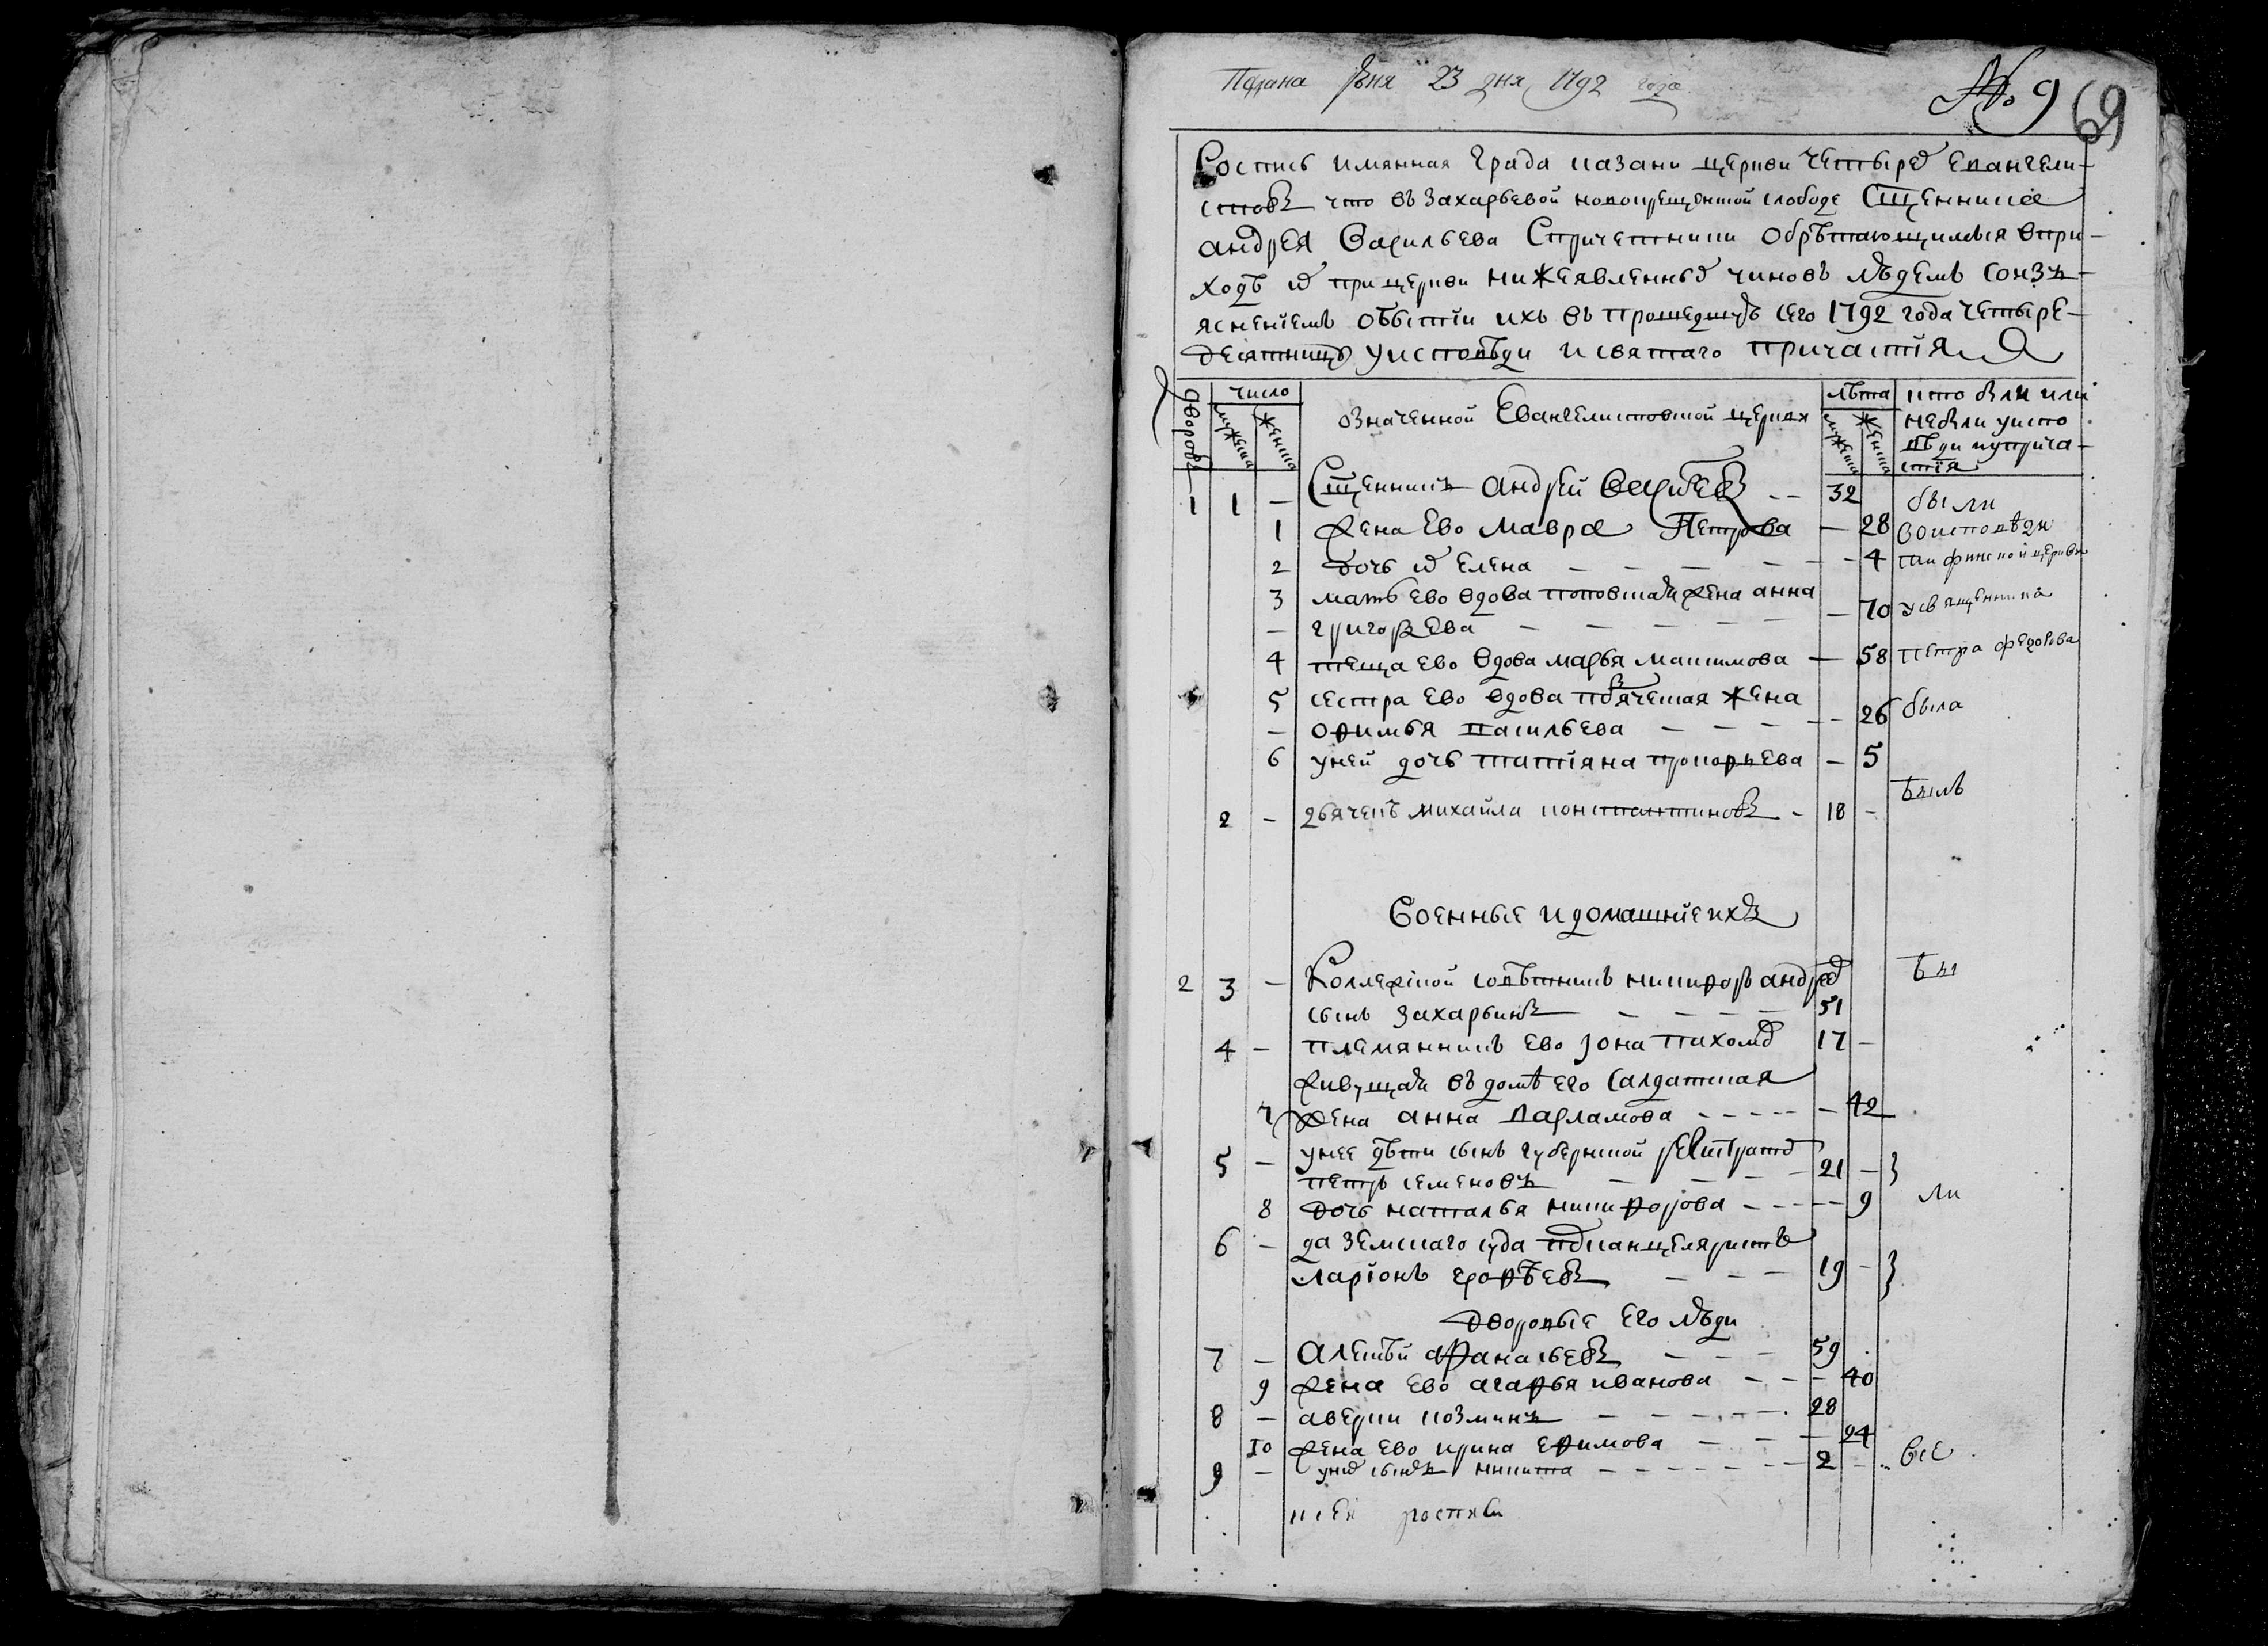 Подана Іюня 23 дня 1792 года
№ 9 69
Роспись имянная града казани церкви четырех евангели-
стовъ что въ Захарьевой новокрещенской слободе Сщенника
андрея Васильева Спричетники обрѣтающимъся впри-
ходѣ и при церкви нижеявленныхъ чиновъ людемъ сонзъ-
яснениемъ обытіи ихъ въ прошедшую сего 1792 года четыре-
десятницу уисповѣди исвятаго причастія
дворовъ
число
мужеска
женска
означенной Евангелистовской церкви
лѣта
мужеска
женска
кто были или
небыли уиспо
вѣди иуприча-
стія
1 1 — Сщенникъ андрей Васильевъ 32 были
1 жена ево мавра Петрова — 28 воисповѣди
2 дочь их елена — 4 тихфинской церкви
3 мать ево вдова поповская жена анна
— григорьева — 70 усвященника
4 теща ево вдова марья максимова — 58 петра федорова
5 сестра ево вдова подьяческая жена
— офимья васильева — 26 была
6 уней дочь татіяна прокофьева — 5
2 — дьячекъ михайла константиновъ 18 — былъ
Военные идомашніе ихъ
2 3 — Коллежской совѣтникъ никифоръ андреевъ бы
сынъ захарьинъ 51
4 — племянникъ ево Іона пахомовъ 17 —
живущая въ домѣ его салдатская
7 жена анна варламова — 42
5 — унее дѣти сынъ губернской регистраторъ
петръ семеновъ 21 —
8 дочь наталья никифорова — 9 ли
6 — да земскаго суда подканцеляристъ
ларіонъ ерофѣевъ 19 —
дворовые его люди
7 — алексѣй афанасьевъ 59
9 жена ево агафья иванова — 40
8 — аверки козминъ 28
10 жена ево ирина ефимова — 24
9 — уних сынъ никита 2 — все
ксей росписи